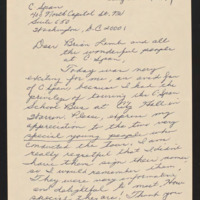 C Span
400 North Capitol St. NW
Suite 650
Washington, D.C. 20001
Dear Brian Lamb and all
the wonderful people
at C Span,
Today was very
exciting for me, an avid fan
of C Span, because I had the
of touring the C Span
School Bus at City Hall in
Warren. Please, express my
appreciation to the two very
special young people who
conducted the tour. I am
really regretful that I didn't
have them sign their names
so I would remember them.
They were very informative
and delightful to meet. How
special they are! Thank you